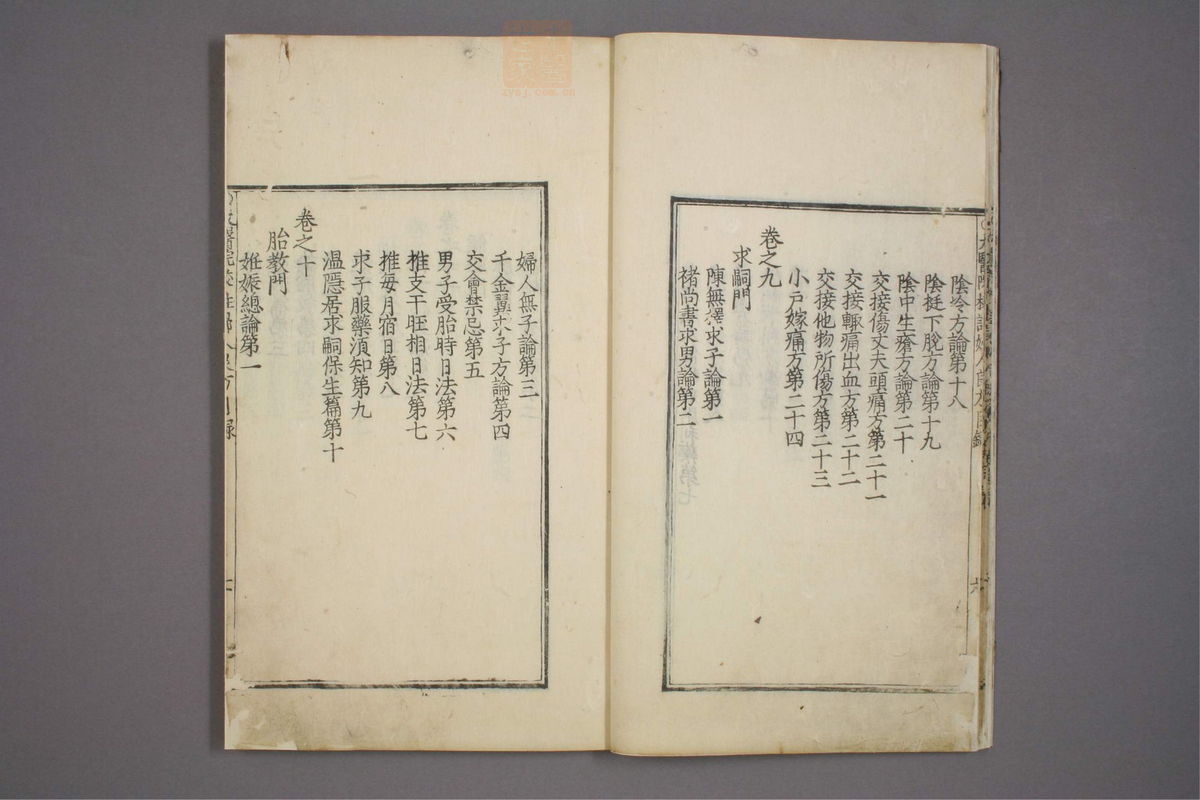 陰冷方論第十八
陰挺下脫方論第十九
陰中生瘡方論第二十
交接傷丈夫頭痛方第二十一
交接輙痛出血方第二十二
交接他物所傷方第二十三
小戸嫁痛方第二十四
卷之九
求嗣門
陳無擇求子論第一
褚尚書求男論第二
婦人無子論第三
千金翼求子方論第四
交會禁忌第五
男子受胎時日法第六
推支干旺相日法第七
推每月宿日第八
求子服藥須知第九
溫隱居求嗣保生篇第十
卷之十
胎教門
姙娠總論第一
zysj.com.cn